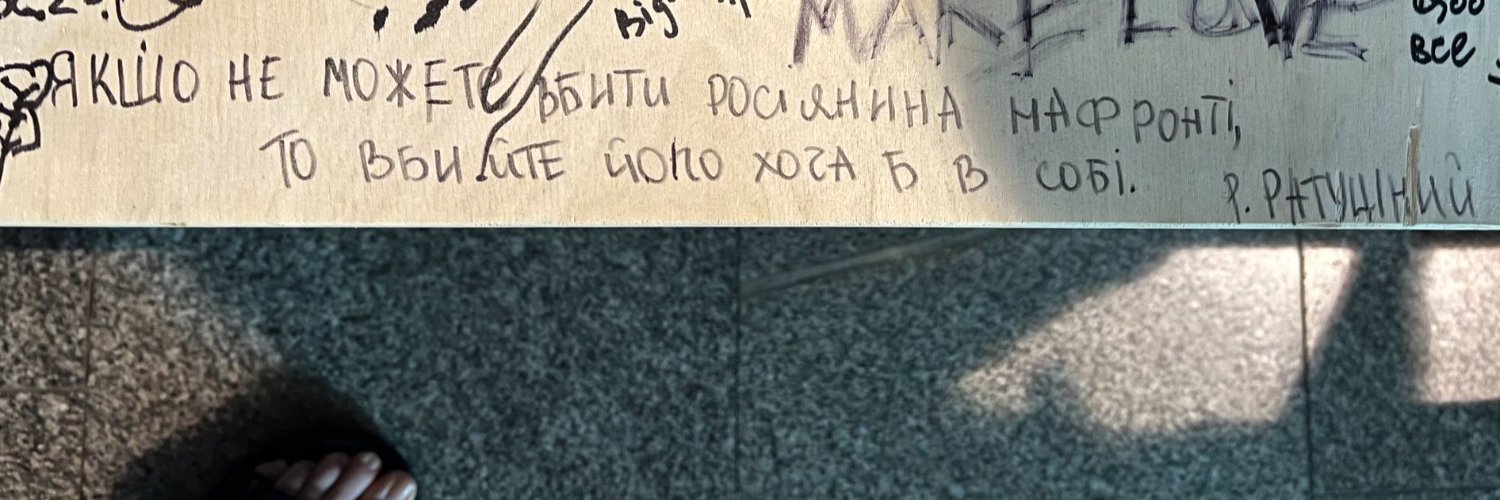 від
MAKE LOVE
все
ЯКЩО НЕ МОЖЕТЕ ВБИТИ РОСІЯНИНА НА ФРОНТІ,
ТО ВБИЙТЕ ЙОГО ХОЧА Б В СОБІ.
Р. РАТУШНИЙ